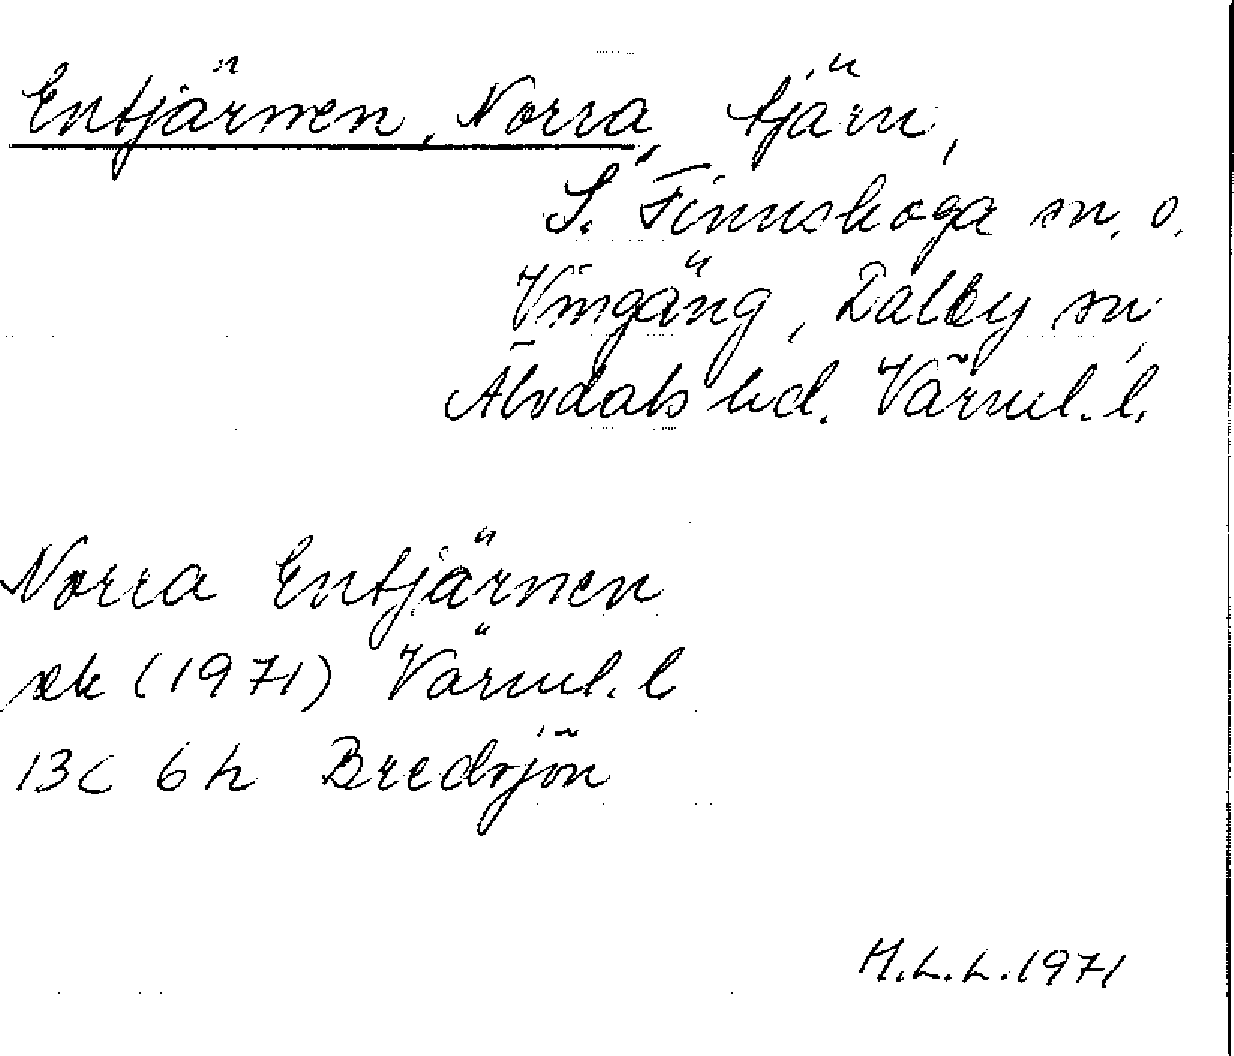 Entjärnen, Norra, tjärn,
S. Finnskoga sn. o.
Vingäng, Dalby sn,
Älvdals hd. Värml. l.
Norra Entjärnen
ek (1971) Värml. l
13C 6h Bredsjön
M.L.L. 1971